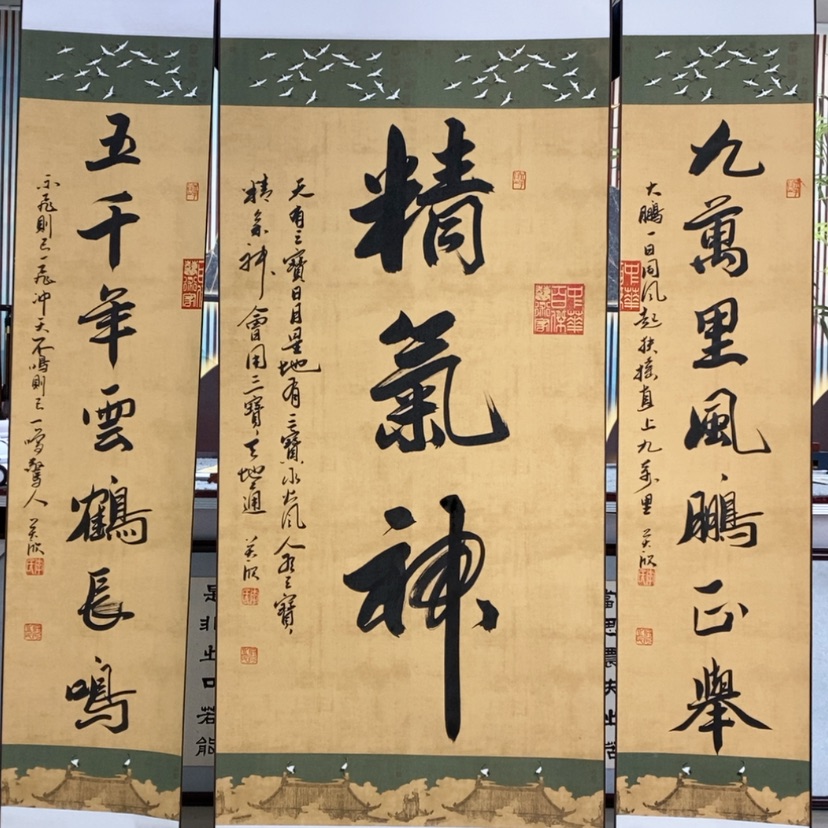 九萬里風鵬正舉
大鵬一日同风起扶摇直上九萬里
精氣神
中華
百傑
天有三寶日月星地有三寶水火风人有三寶
精氣神會用三寶天地通
五千年雲鶴長鳴
不飛則已一飛冲天不鳴則已一鳴驚人